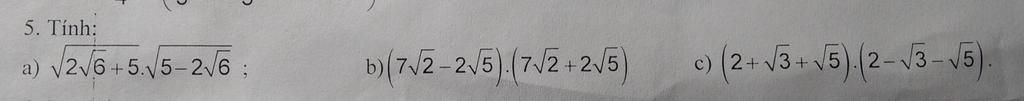 5. Tính:
a) √(2√6+5).√(5−2√6) ; b) (7√2−2√5).(7√2+2√5) c) (2+√3+√5).(2−√3−√5).